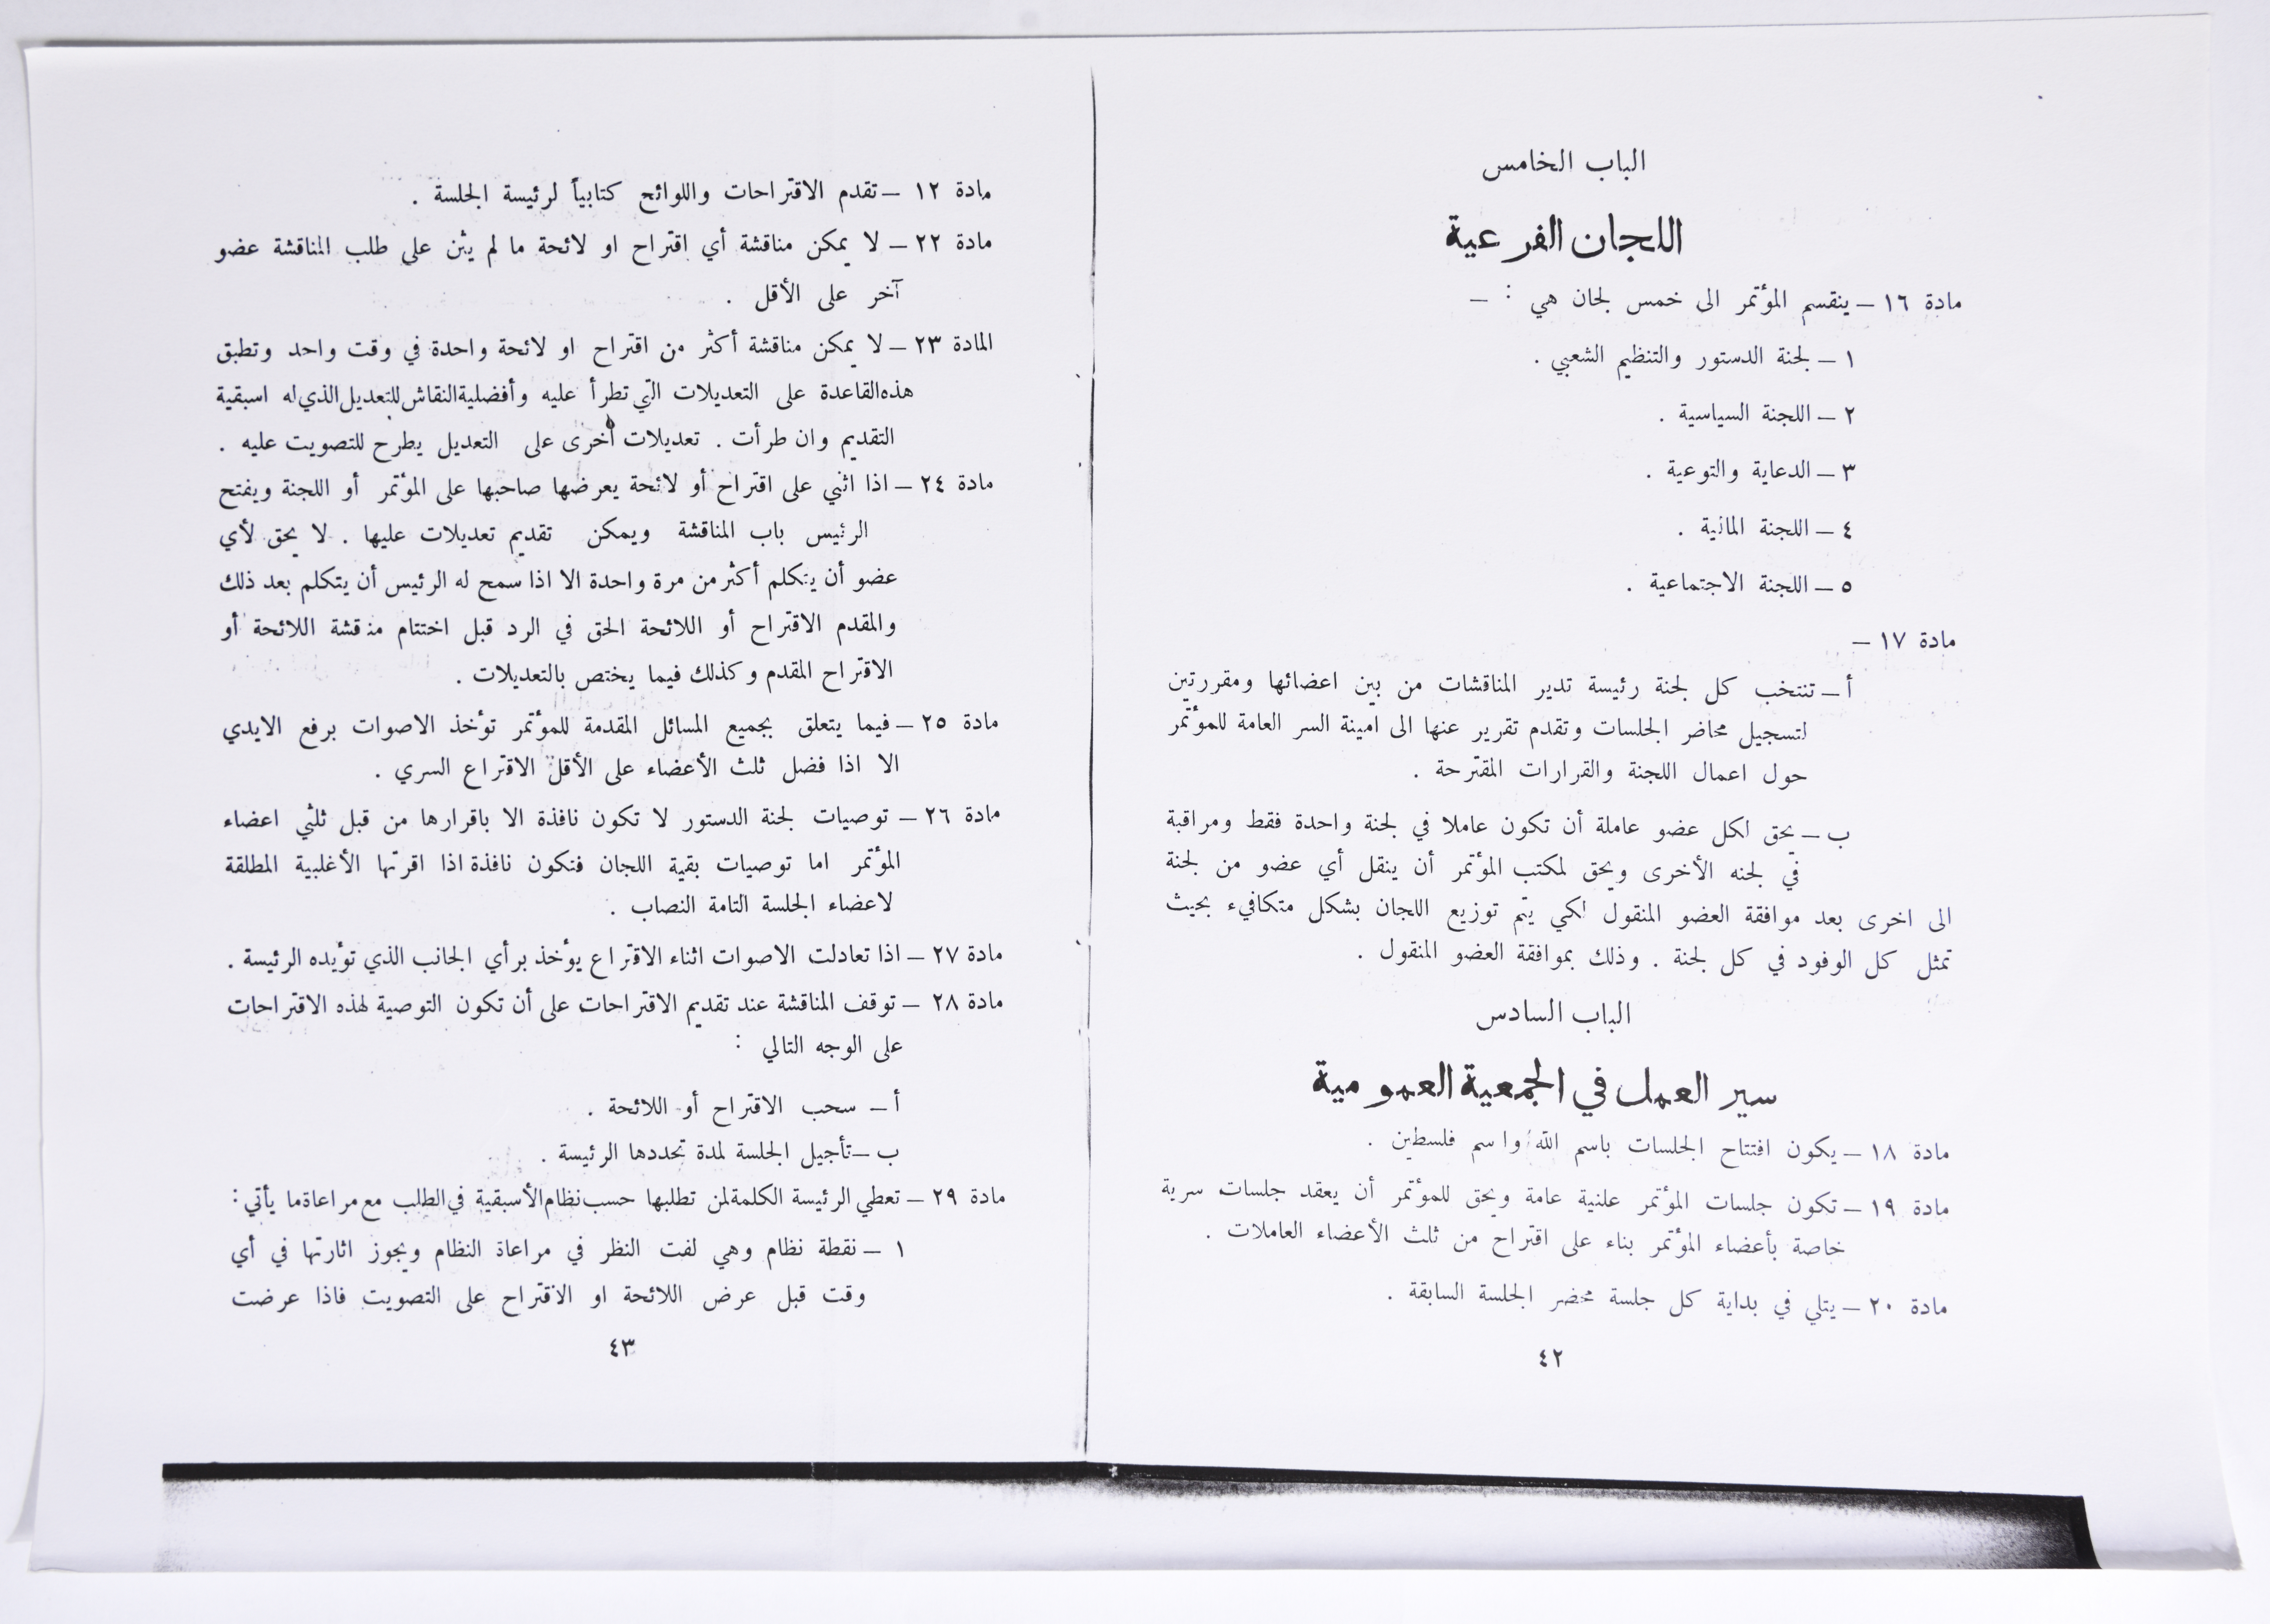 الباب الخامس
اللجان الفرعية
مادة ١٦ – ينقسم المؤتمر الى خمس لجان هي : –
١ – لجنة الدستور والتنظيم الشعبي .
٢ – اللجنة السياسية .
٣ – الدعاية والتوعية .
٤ – اللجنة المالية .
٥ – اللجنة الاجتماعية .
مادة ١٧ –
أ – تنتخب كل لجنة رئيسة تدير المناقشات من بين اعضائها ومقررتين
لتسجيل محاضر الجلسات وتقدم تقرير عنها الى امينة السر العامة للمؤتمر
حول اعمال اللجنة والقرارات المقترحة .
ب – يحق لكل عضو عاملة أن تكون عاملا في لجنة واحدة فقط ومراقبة
في لجنه الأخرى ويحق لمكتب المؤتمر أن ينقل أي عضو من لجنة
الى اخرى بعد موافقة العضو المنقول لكي يتم توزيع اللجان بشكل متكافيء بحيث
تمثل كل الوفود في كل لجنة . وذلك بموافقة العضو المنقول .
الباب السادس
سير العمل في الجمعية العمومية
مادة ١٨ – يكون افتتاح الجلسات باسم الله واسم فلسطين .
مادة ١٩ – تكون جلسات المؤتمر علنية عامة ويحق للمؤتمر أن يعقد جلسات سرية
خاصة بأعضاء المؤتمر بناء على اقتراح من ثلث الأعضاء العاملات .
مادة ٢٠ – يتلي في بداية كل جلسة محضر الجلسة السابقة .
٤٢
مادة ١٢ – تقدم الاقتراحات واللوائح كتابياً لرئيسة الجلسة .
مادة ٢٢ – لا يمكن مناقشة أي اقتراح او لائحة ما لم يثن على طلب المناقشة عضو
آخر على الأقل .
المادة ٢٣ – لا يمكن مناقشة أكثر من اقتراح او لائحة واحدة في وقت واحد وتطبق
هذه القاعدة على التعديلات التي تطرأ عليه وأفضلية النقاش للتعديل الذي له اسبقية
التقديم وان طرأت . تعديلات أخرى على التعديل يطرح للتصويت عليه .
مادة ٢٤ – اذا اثني على اقتراح أو لائحة يعرضها صاحبها على المؤتمر أو اللجنة ويفتح
الرئيس باب المناقشة ويمكن تقديم تعديلات عليها . لا يحق لأي
عضو أن يتكلم أكثر من مرة واحدة الا اذا سمح له الرئيس أن يتكلم بعد ذلك
والمقدم الاقتراح أو اللائحة الحق في الرد قبل اختتام مناقشة اللائحة أو
الاقتراح المقدم وكذلك فيما يختص بالتعديلات .
مادة ٢٥ – فيما يتعلق بجميع المسائل المقدمة للمؤتمر تؤخذ الاصوات برفع الايدي
الا اذا فضل ثلث الأعضاء على الأقل الاقتراع السري .
مادة ٢٦ – توصيات لجنة الدستور لا تكون نافذة الا باقرارها من قبل ثلثي اعضاء
المؤتمر اما توصيات بقية اللجان فتكون نافذة اذا اقرتها الأغلبية المطلقة
لاعضاء الجلسة التامة النصاب .
مادة ٢٧ – اذا تعادلت الاصوات اثناء الاقتراع يؤخذ برأي الجانب الذي تؤيده الرئيسة .
مادة ٢٨ – توقف المناقشة عند تقديم الاقتراحات على أن تكون التوصية لهذه الاقتراحات
على الوجه التالي :
أ – سحب الاقتراح أو اللائحة .
ب – تأجيل الجلسة لمدة تحددها الرئيسة .
مادة ٢٩ – تعطي الرئيسة الكلمة لمن تطلبها حسب نظام الأسبقية في الطلب مع مراعاة ما يأتي :
١ – نقطة نظام وهي لفت النظر في مراعاة النظام ويجوز اثارتها في أي
وقت قبل عرض اللائحة او الاقتراح على التصويت فاذا عرضت
٤٣